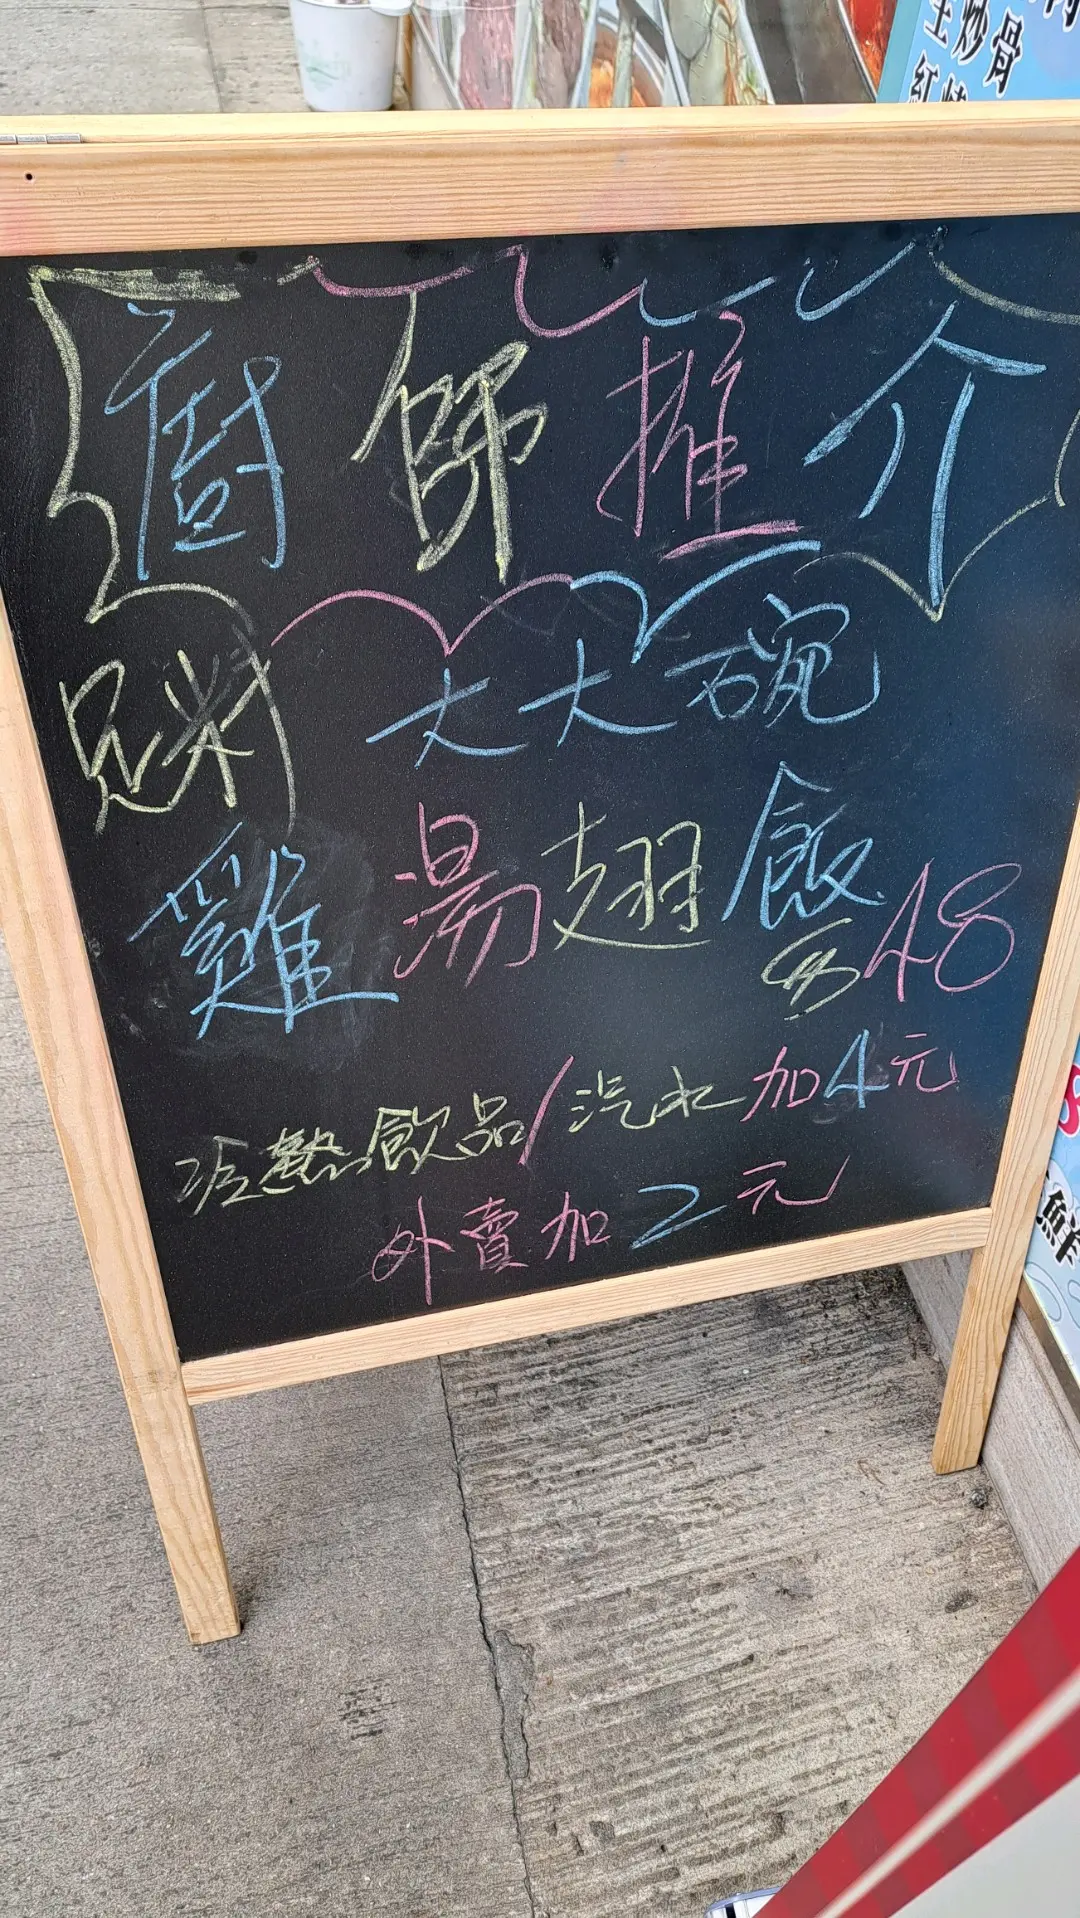 生炒骨
紅燒
廚師推介
足料 大大碗
雞湯翅飯 $48
冷熱飲品/汽水加4元
外賣加2元
鮮